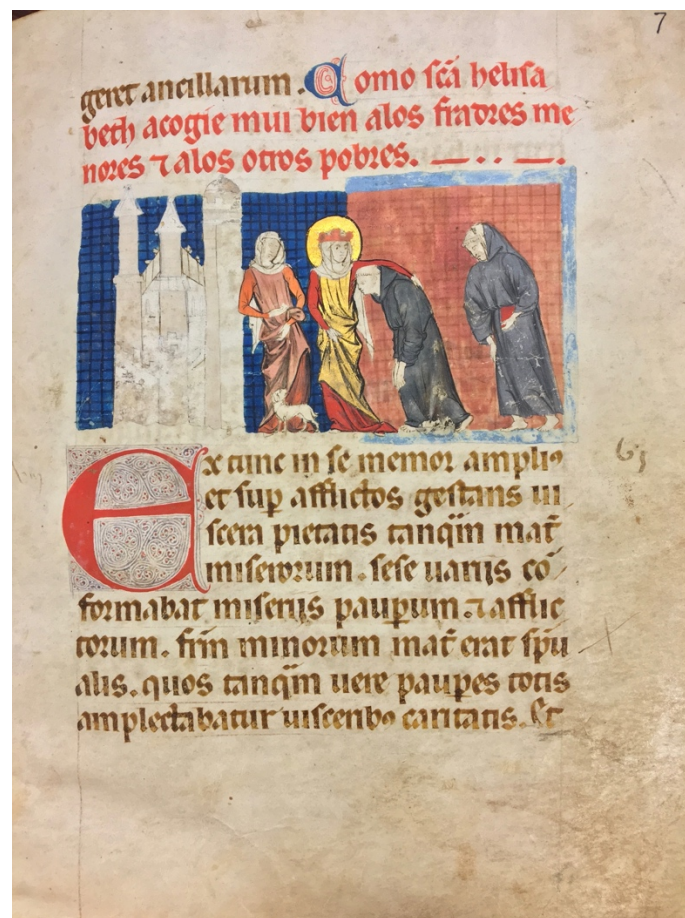 7
geret ancillarum. Como scã helisa
beth acogie mui bien alos fradres me
nores ⁊ alos otros pobres.
Ex tunc in se memor ampliꝰ
et sup afflictos gestans ui
scera pietatis tanq̃m mat̃
miserorum. sese uarijs cõ
formabat miserijs paup̱um. ⁊ afflic
torum. frm̃ minorum mat̃ erat sp̃u
alis. quos tanq̃m uere paup̱es totis
amplectabatur uisceribꝰ caritatis. Et